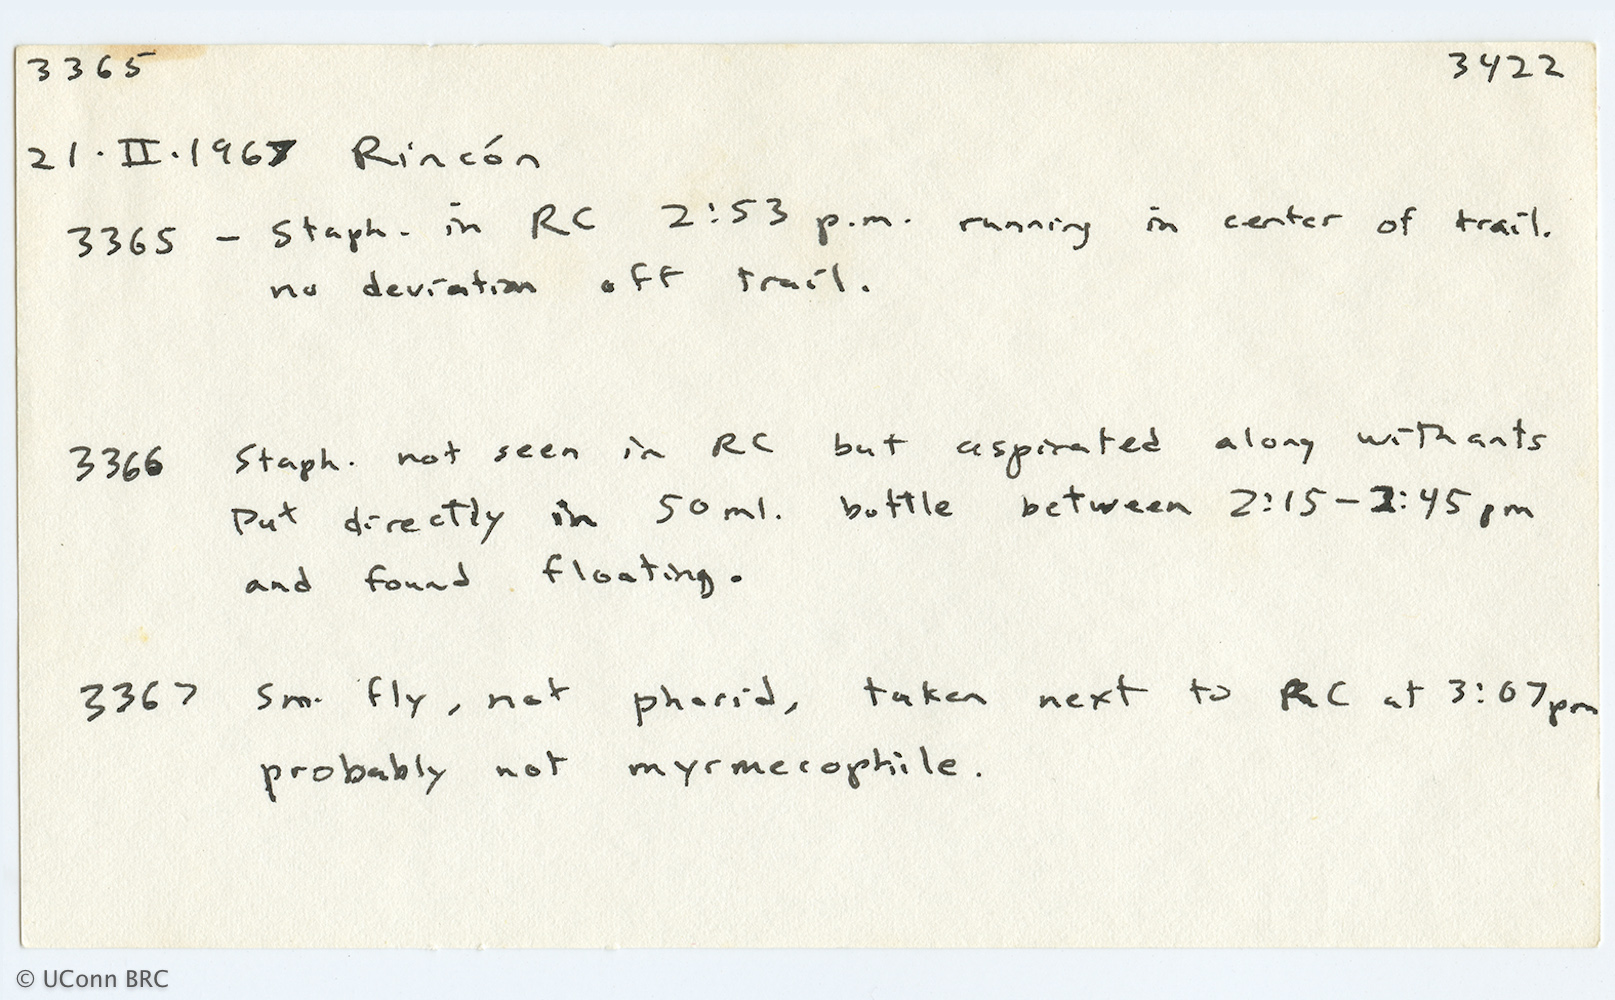 3365 3422
21·II·1967 Rincón
3365 – Staph. in RC 2:53 p.m. running in center of trail.
no deviation off trail.
3366 Staph. not seen in RC but aspirated along with ants
Put directly in 50 ml. bottle between 2:15–2:45 pm
and found floating.
3367 Sm. fly, not phorid, taken next to RC at 3:07pm
probably not myrmecophile.
© UConn BRC